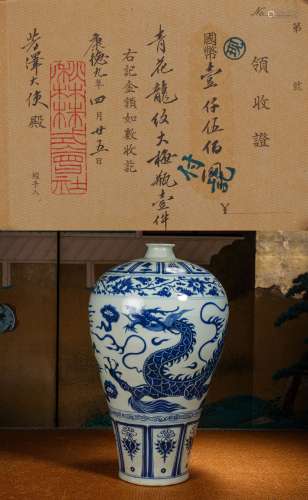 No. 第 號
領收證
國幣壹仟伍佰圓
付訖
¥
青花龍紋大梅瓶壹件
右記金額如數收訖
康德九年四月廿五
秋林株式會社
經手人
芳澤大使殿